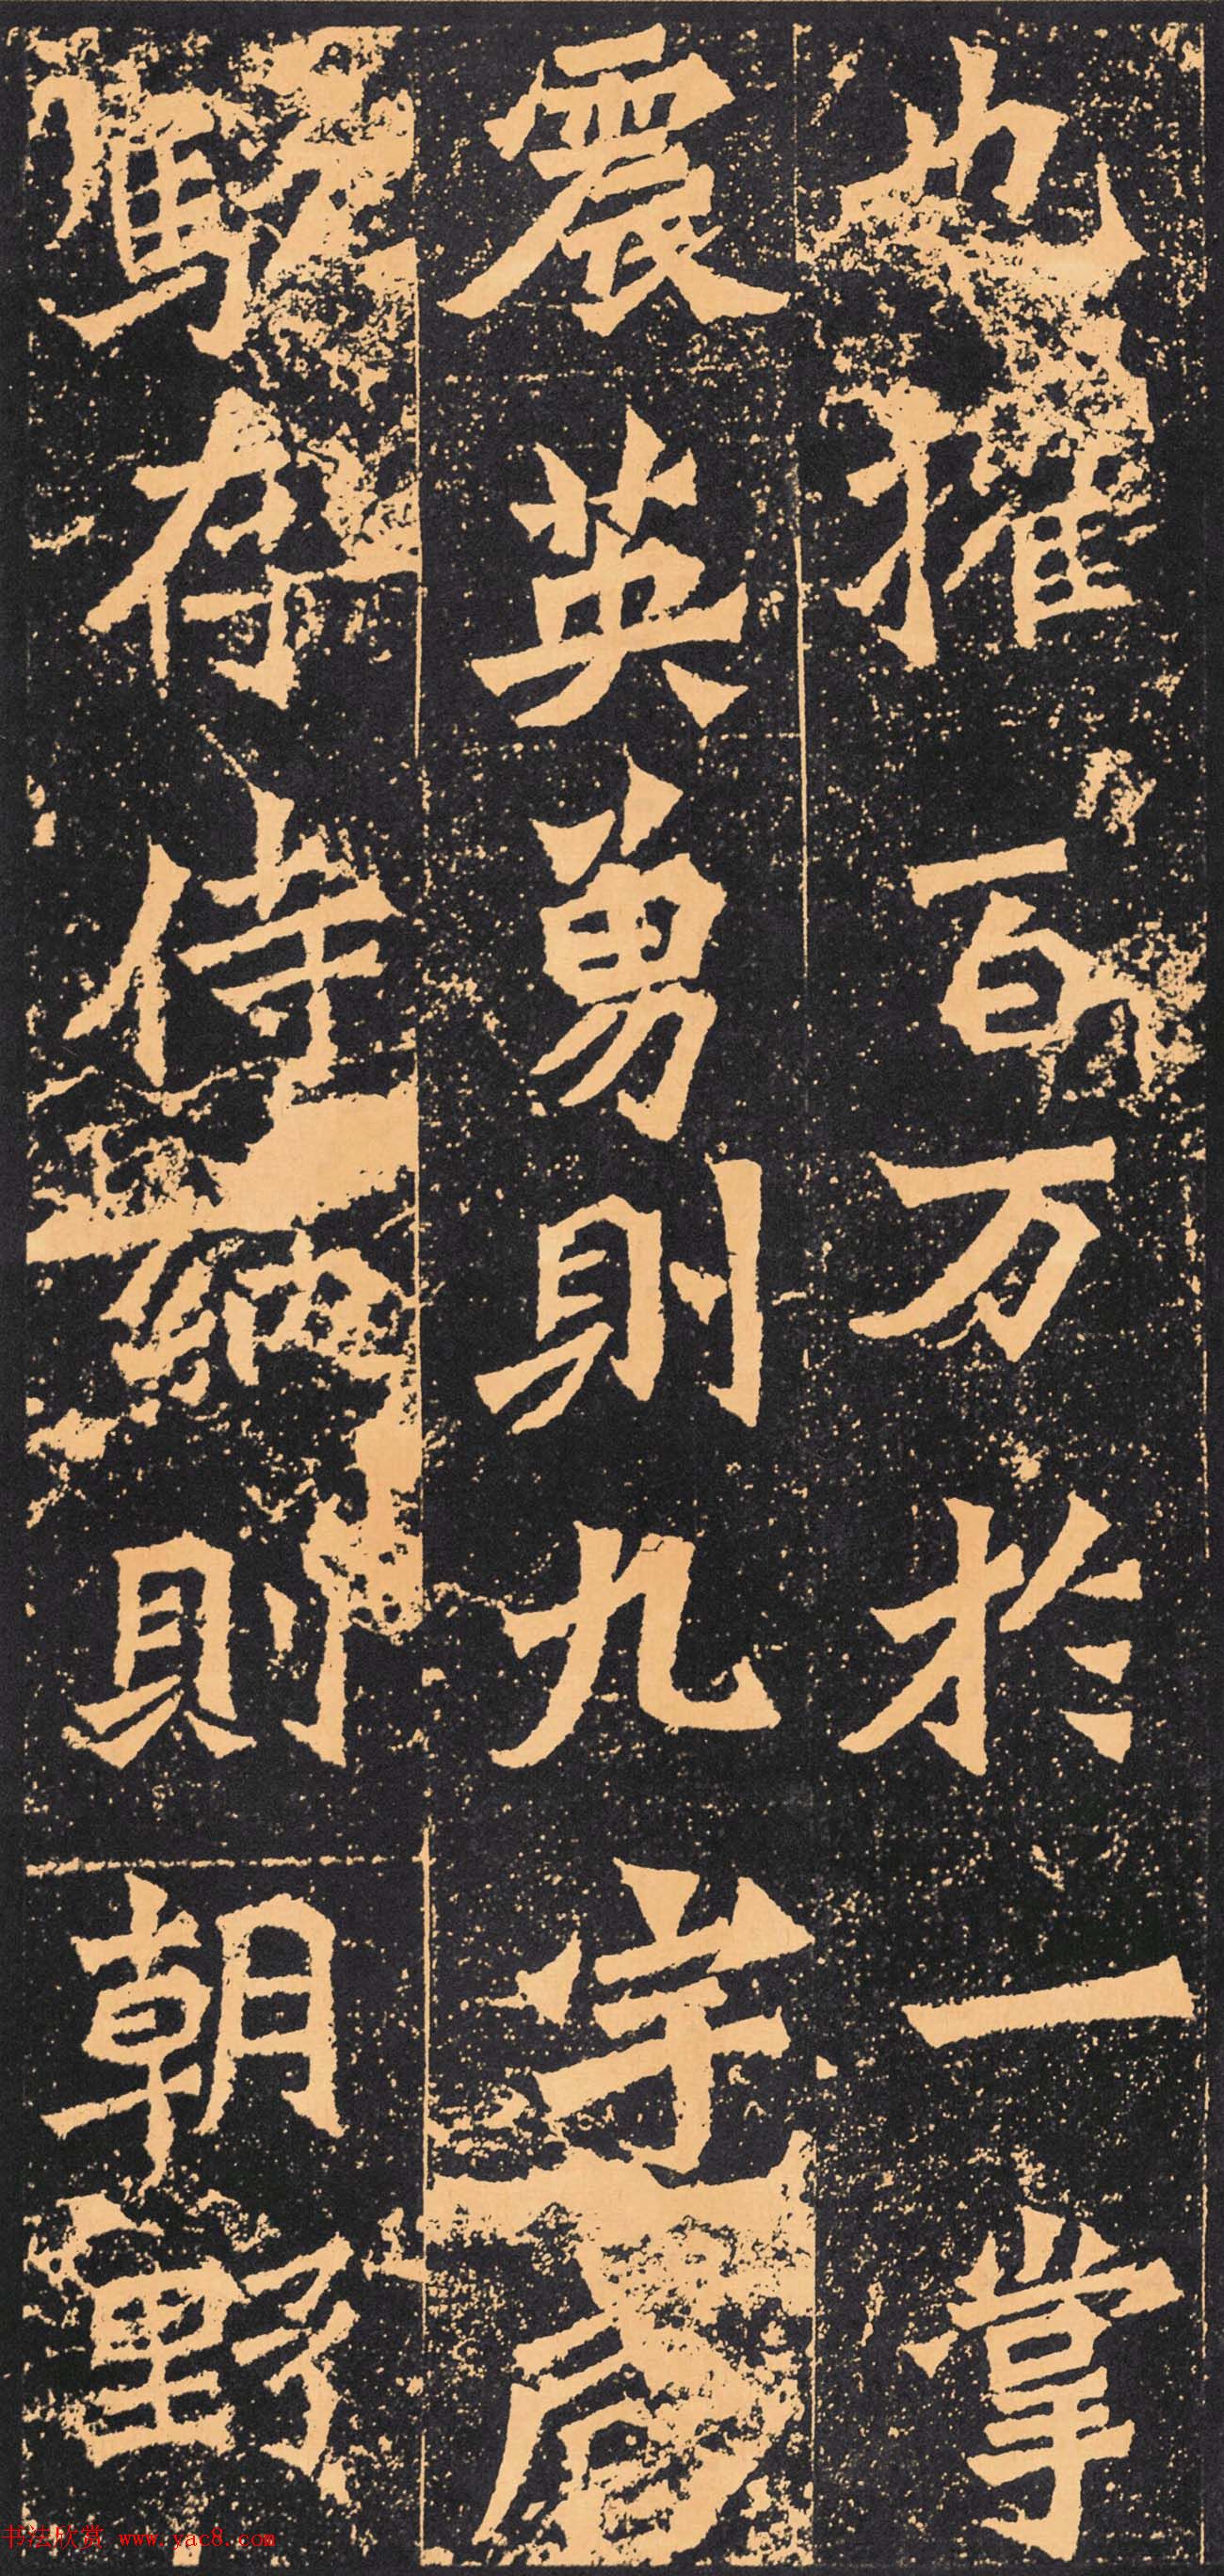 也擢百万於一掌
震英勇則九宇咸
駕存侍納則朝野
书法欣赏 www.yac8.com